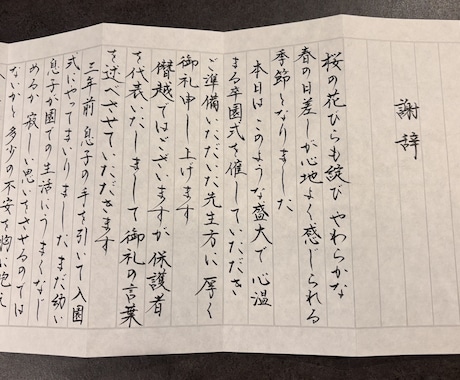 謝辞
桜の花びらも綻び やわらかな
春の日差しが心地よく感じられる
季節となりました
本日は このような盛大で 心温
まる卒園式を催していただき
ご準備いただいた先生方に 厚く
御礼申し上げます
僭越ではございますが 保護者
を代表いたしまして 御礼の言葉
を述べさせていただきます
三年前 息子の手を引いて 入園
式にやってまいりました まだ幼い
息子が園での生活にうまくなじ
めるか 寂しい思いをさせるのでは
ないかと 多少の不安を胸に抱え